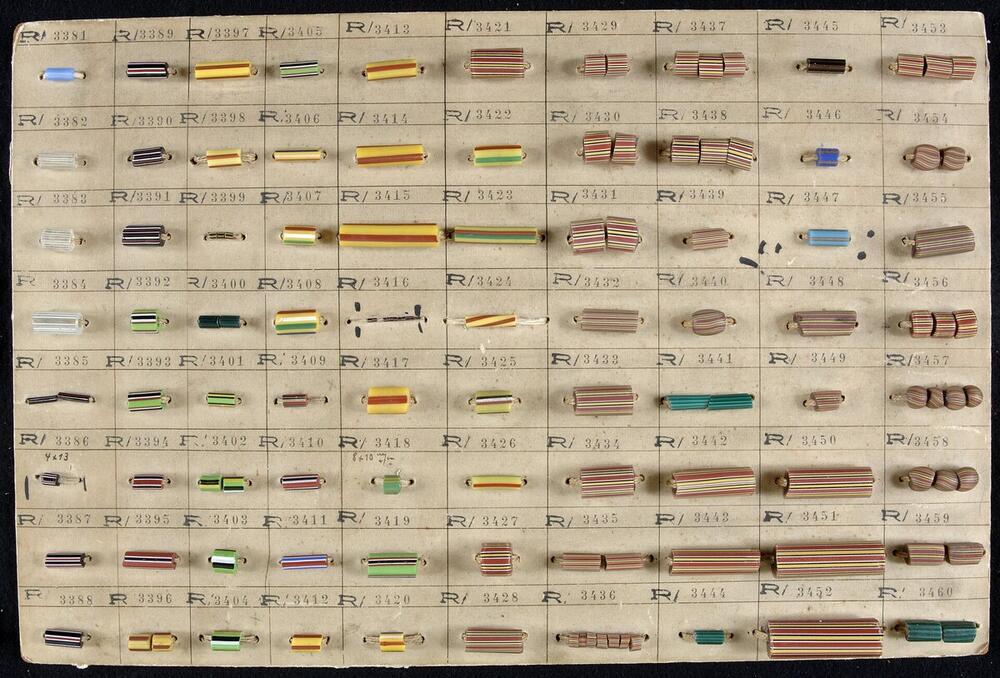 R/ 3381 R/ 3389 R/ 3397 R/ 3405 R/ 3413 R/ 3421 R/ 3429 R/ 3437 R/ 3445 R/ 3453
R/ 3382 R/ 3390 R/ 3398 R/ 3406 R/ 3414 R/ 3422 R/ 3430 R/ 3438 R/ 3446 R/ 3454
R/ 3383 R/ 3391 R/ 3399 R/ 3407 R/ 3415 R/ 3423 R/ 3431 R/ 3439 R/ 3447 R/ 3455
R/ 3384 R/ 3392 R/ 3400 R/ 3408 R/ 3416 R/ 3424 R/ 3432 R/ 3440 R/ 3448 R/ 3456
R/ 3385 R/ 3393 R/ 3401 R/ 3409 R/ 3417 R/ 3425 R/ 3433 R/ 3441 R/ 3449 R/ 3457
R/ 3386 R/ 3394 R/ 3402 R/ 3410 R/ 3418 R/ 3426 R/ 3434 R/ 3442 R/ 3450 R/ 3458
4x13 8x10 m/m
R/ 3387 R/ 3395 R/ 3403 R/ 3411 R/ 3419 R/ 3427 R/ 3435 R/ 3443 R/ 3451 R/ 3459
R 3388 R 3396 R/ 3404 R/ 3412 R/ 3420 R/ 3428 R/ 3436 R/ 3444 R/ 3452 R/ 3460